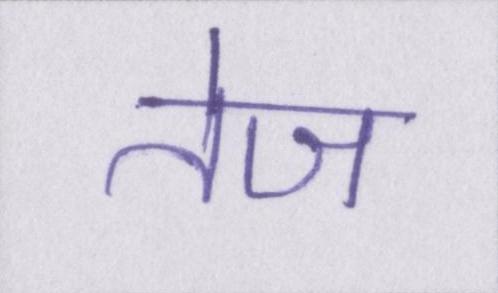 तेज